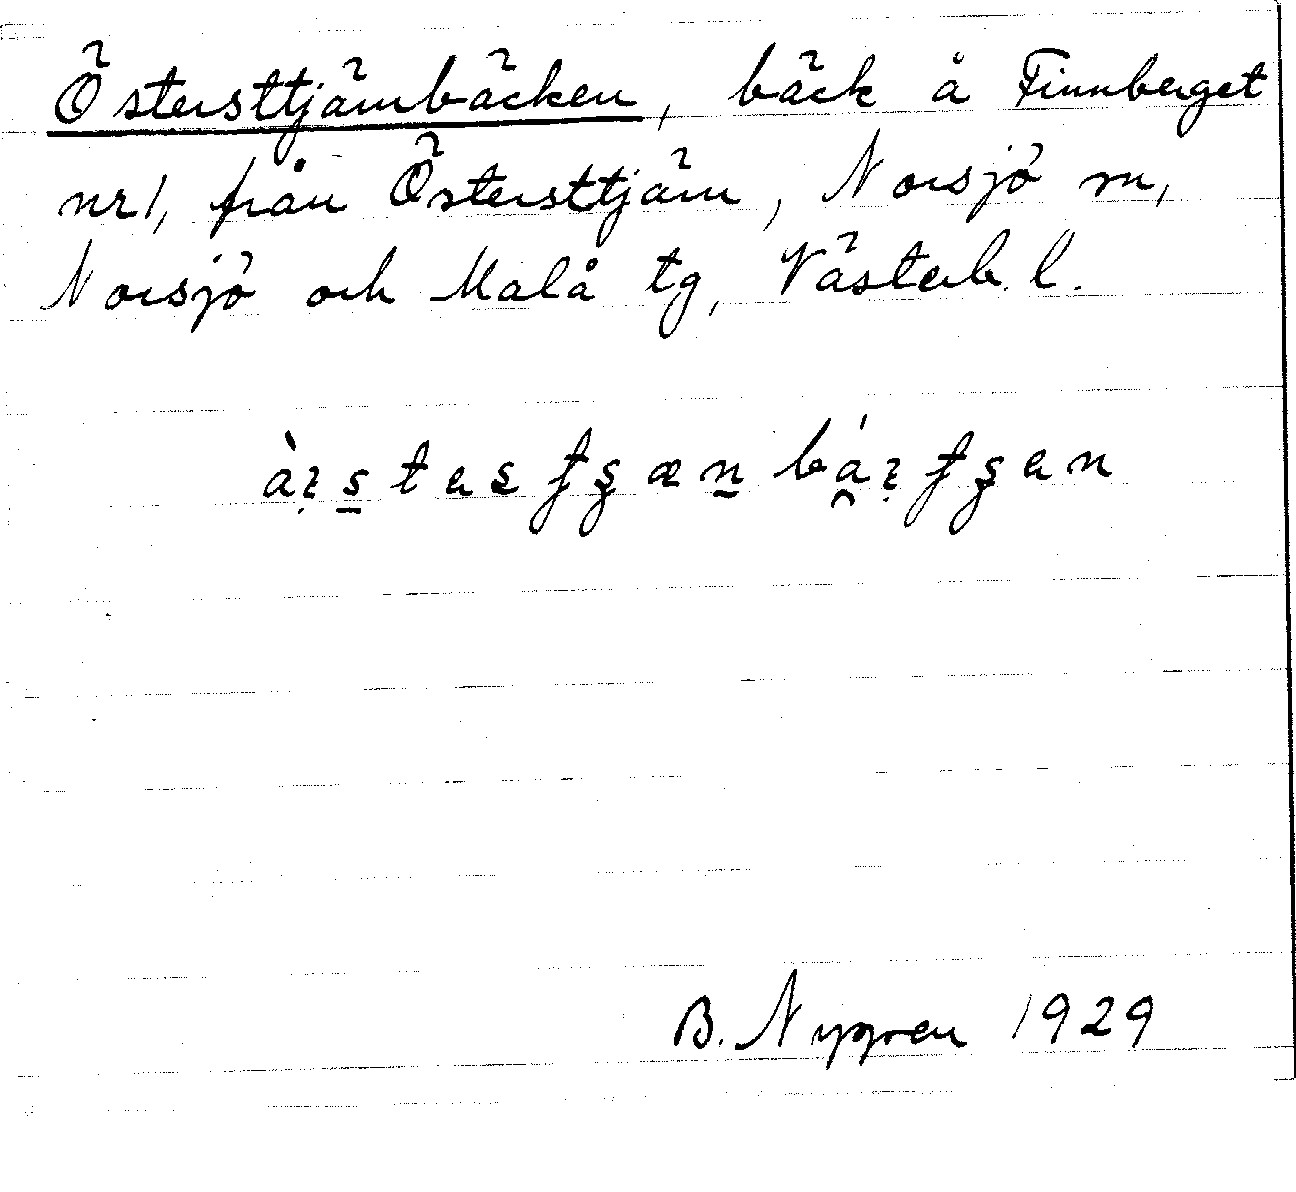 Östersttjärnbäcken, bäck å Finnberget
nr 1, från Östersttjärn, Norsjö sn,
Norsjö och Malå tg, Västerb. l.
B. Nygren 1929